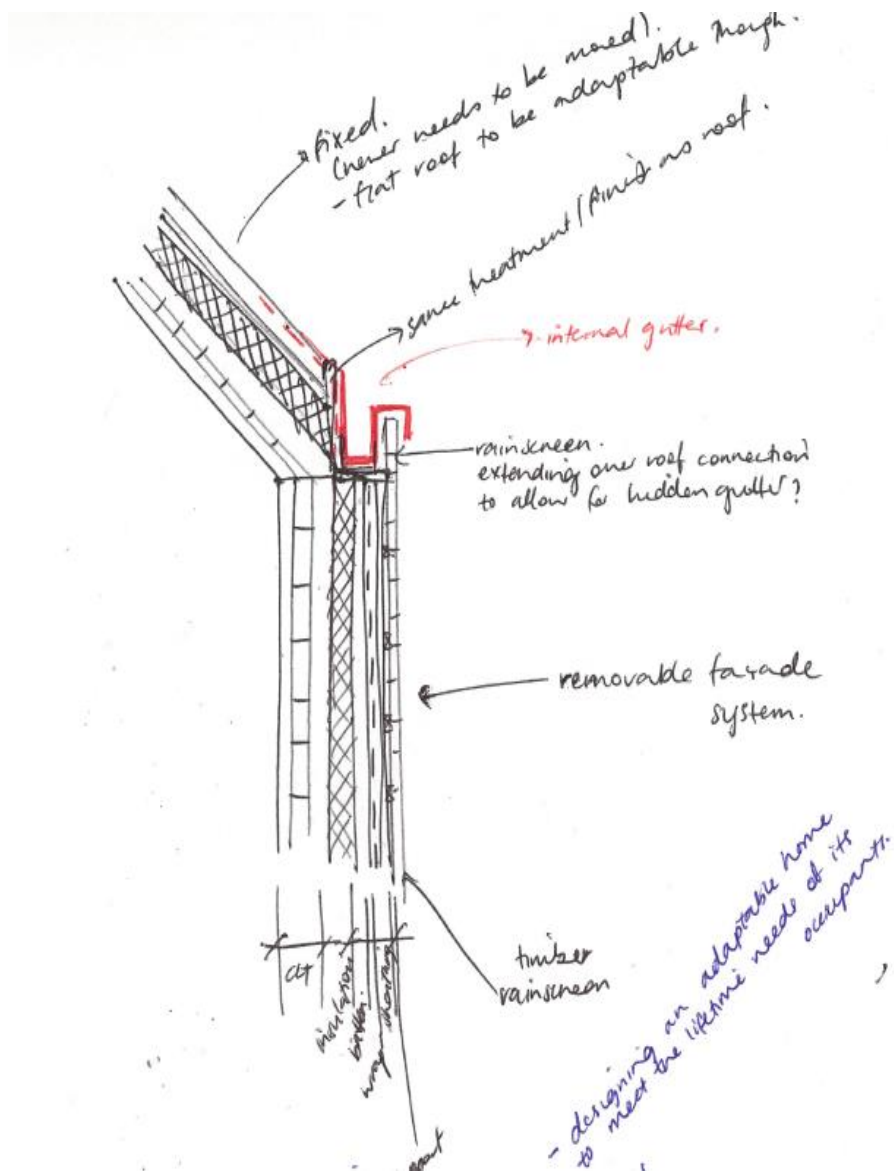 fixed.
(never needs to be moved).
- flat roof to be adaptable though.
same treatment/finish as roof.
internal gutter.
rainscreen.
extending over roof connection
to allow for hidden gutter?
removable façade
system.
timber
rainscreen
CLT
insulation
batten.
- designing an adaptable home
to meet the lifetime needs of its
occupants.